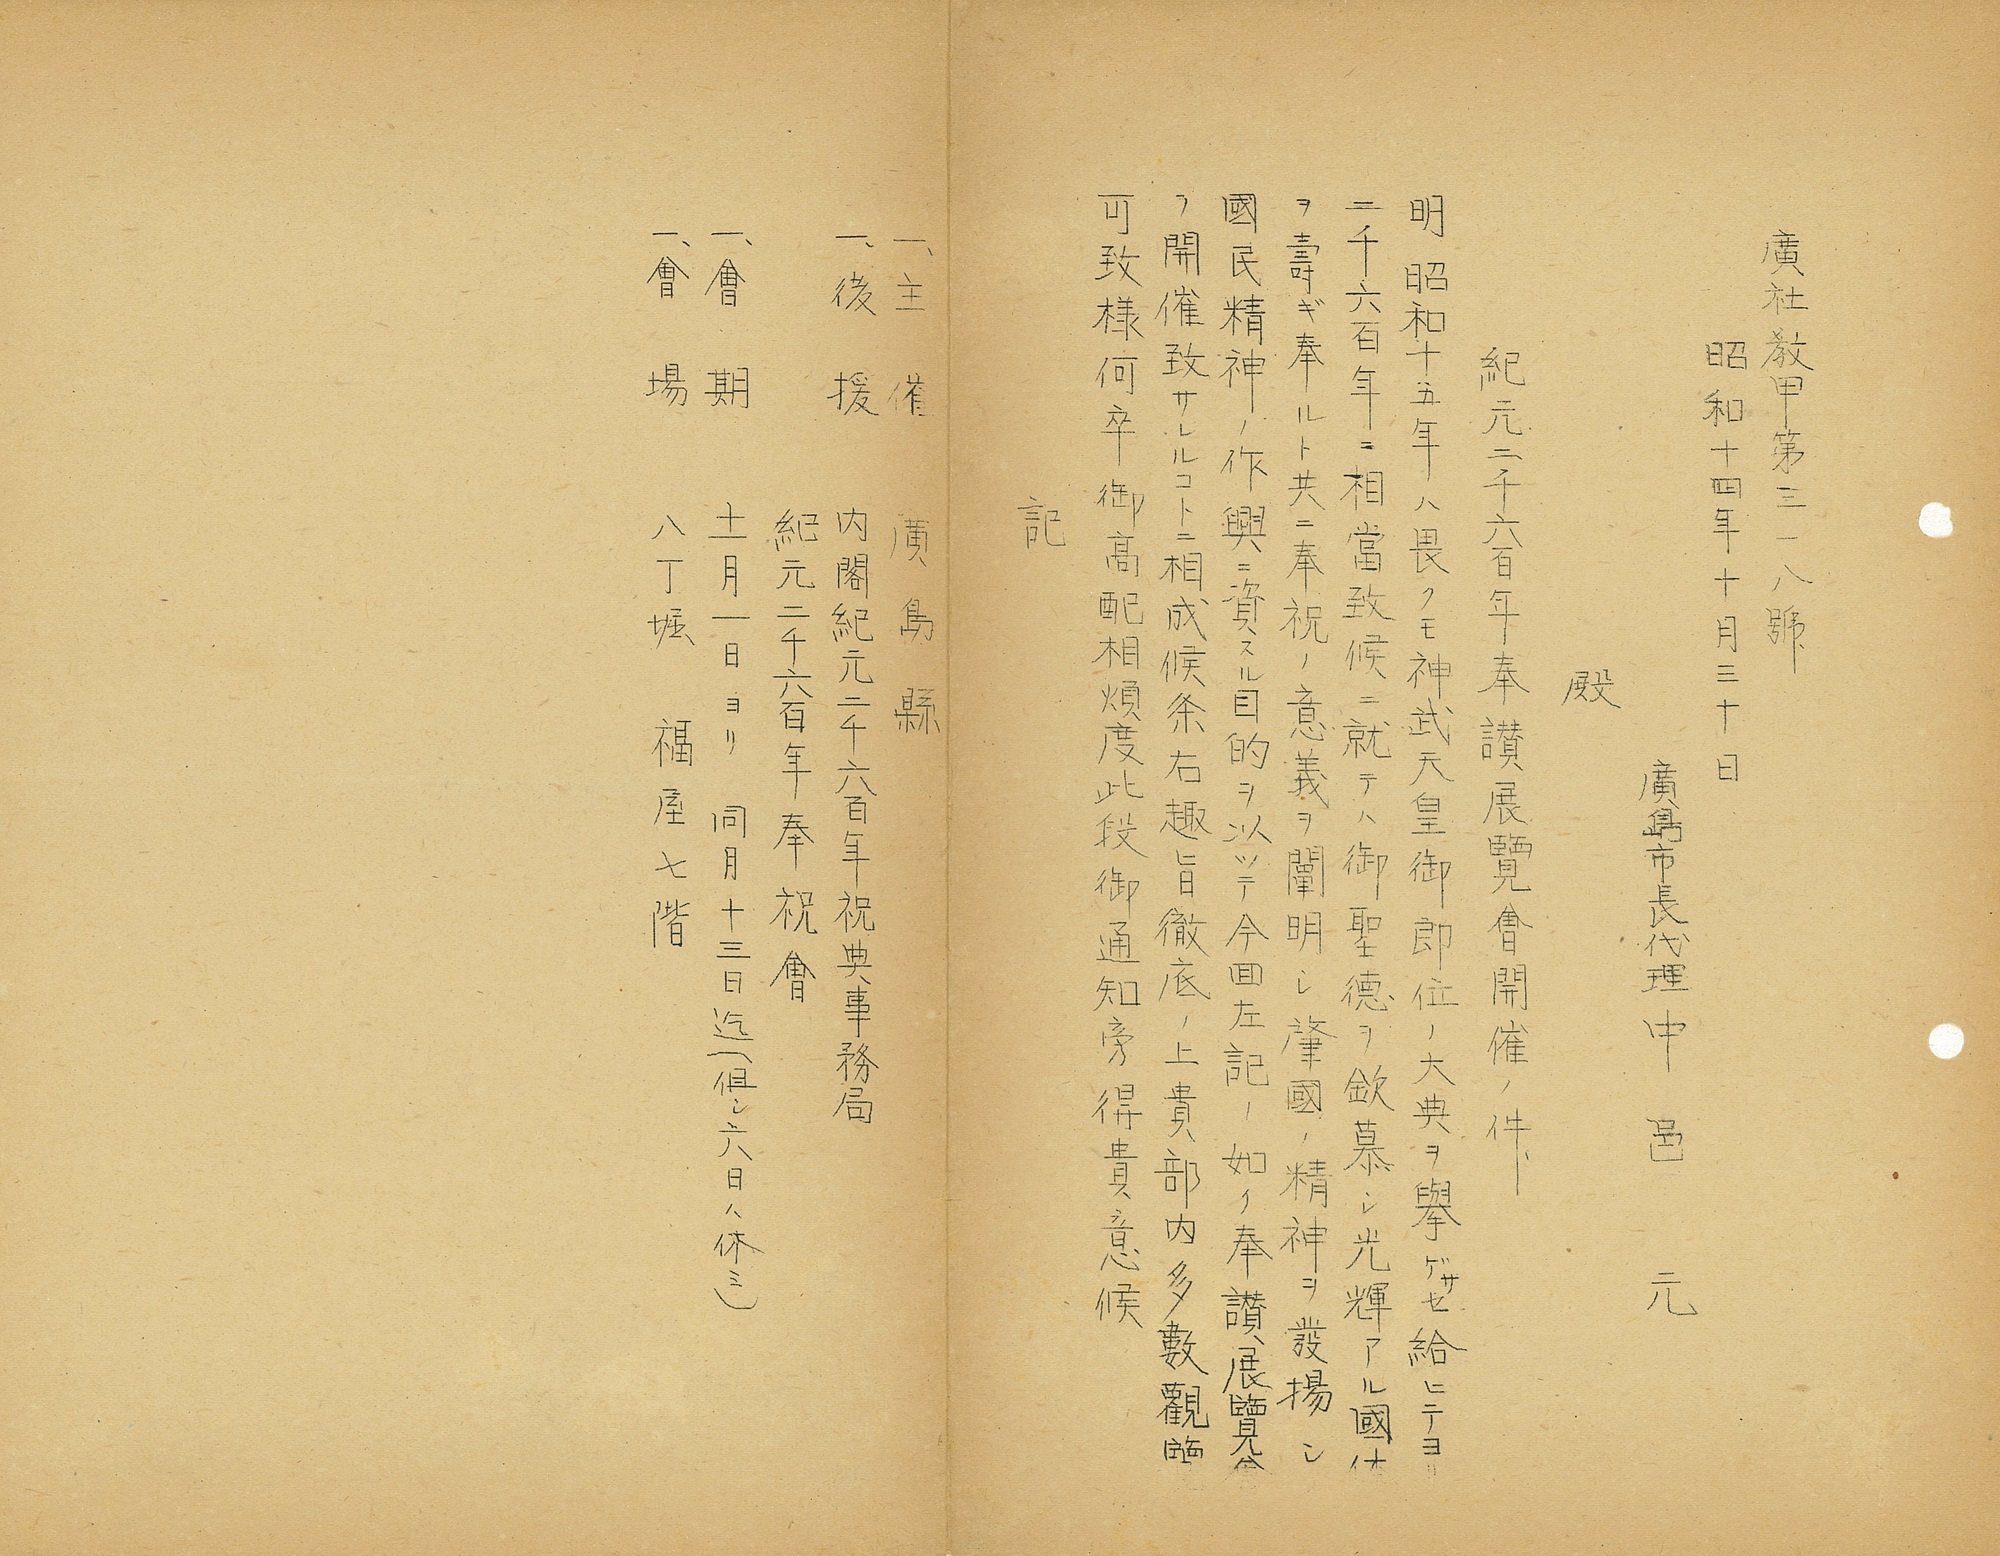 廣社教甲第三一八號
昭和十四年十月三十日
廣島市長代理中邑元
殿
紀元二千六百年奉讃展覽會開催ノ件
明昭和十五年ハ畏クモ神武天皇御即位ノ大典ヲ擧ゲサセ給ヒテヨリ
二千六百年ニ相當致候ニ就テハ御聖德ヲ欽慕シ光輝アル國体
ヲ壽ギ奉ルト共ニ奉祝ノ意義ヲ闡明シ肇國ノ精神ヲ發揚シ
國民精神ノ作興ニ資スル目的ヲ以ツテ今回左記ノ如ク奉讃展覽会
ヲ開催致サレルコトニ相成候条右趣旨徹底ノ上貴部内多數觀臨
可致様何卒御高配相煩度此段御通知旁得貴意候
記
一、主催 廣島縣
一、後援 内閣紀元二千六百年祝典事務局
紀元二千六百年奉祝會
一、會期 十一月一日ヨリ 同月十三日迄(但シ六日ハ休ミ)
一、會場 八丁堀 福屋七階